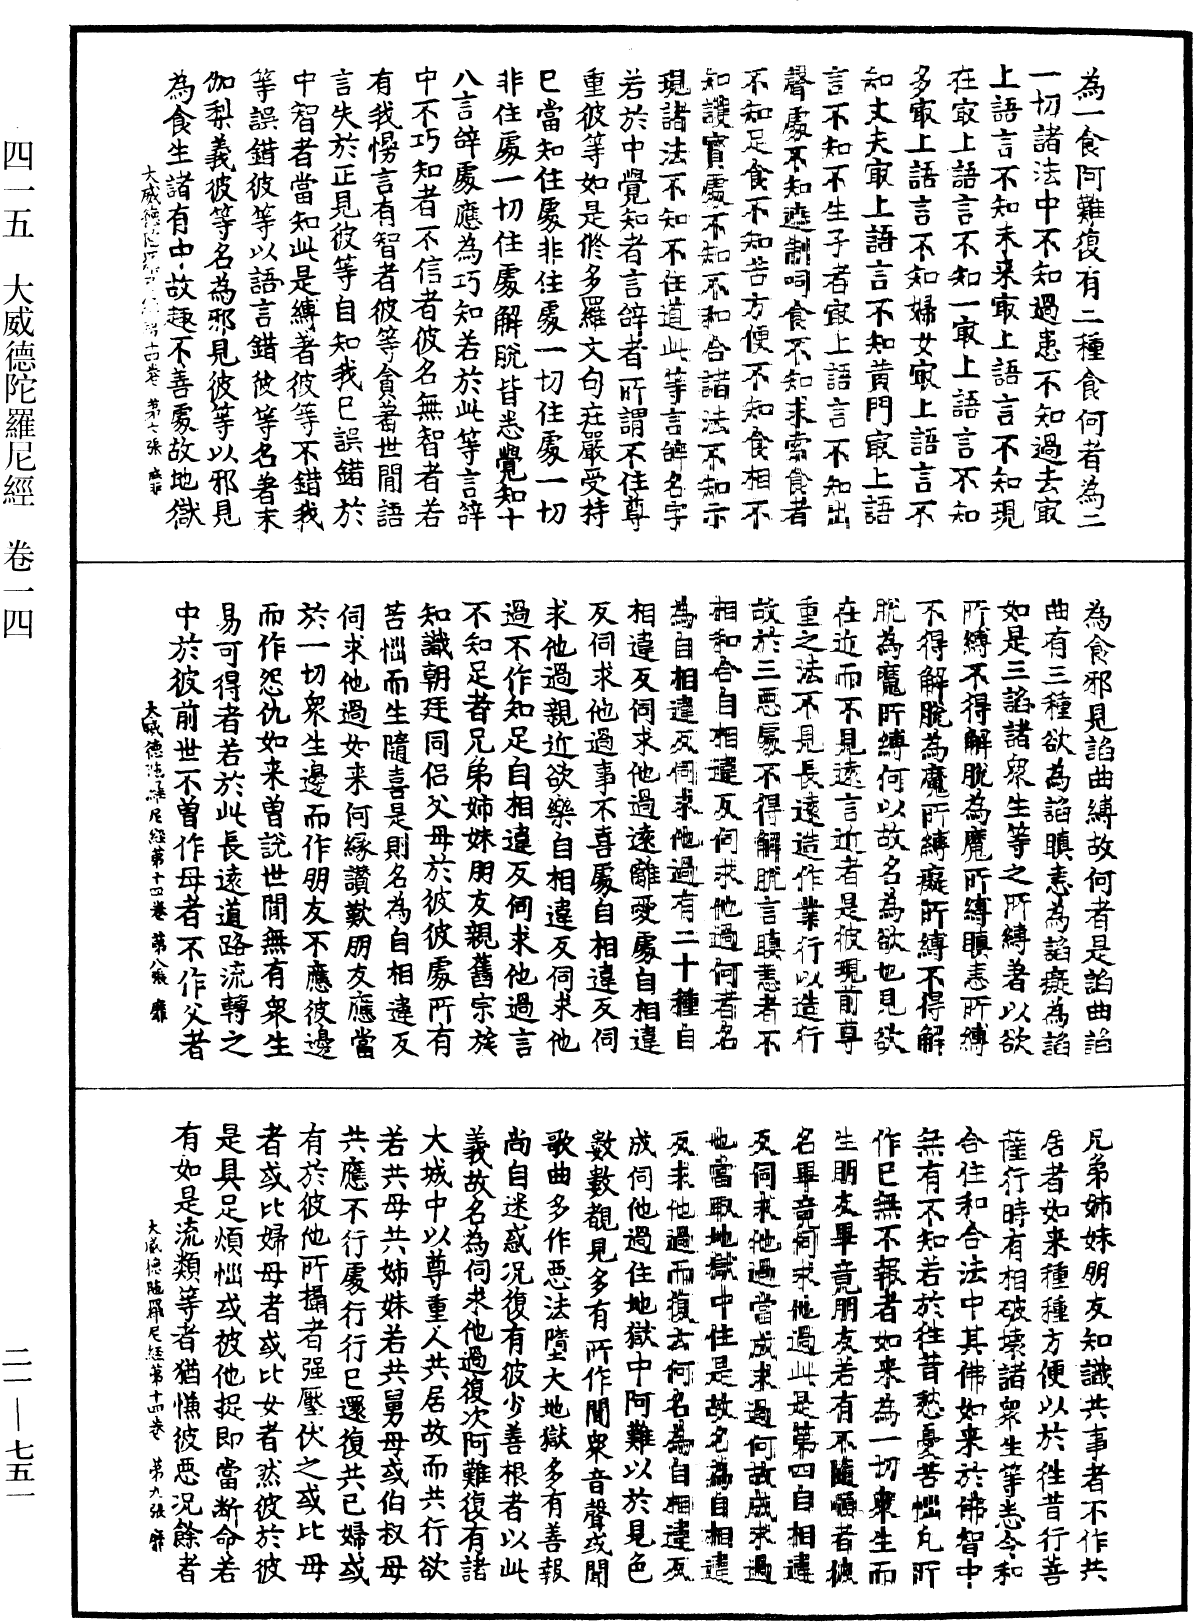 為一食阿難復有二種食何者為二
一切諸法中不知過患不知過去㝡
上語言不知未來㝡上語言不知現
在㝡上語言不知一㝡上語言不知
多㝡上語言不知婦女㝡上語言不
知丈夫㝡上語言不知黃門㝡上語
言不知不生子者㝡上語言不知出
聲處不知遮制呵食不知求索食者
不知足食不知苦方便不知食相不
知讚實處不知不和合諸法不知示
現諸法不知不住道此等言辭名字
若於中覺知者言辭者所謂不住尊
重彼等如是修多羅文句莊嚴受持
巳當知住處非住處一切住處一切
非住處一切住處解脫皆悉覺知十
八言辭處應為巧知若於此等言辭
中不巧知者不信者彼名無智者若
有我慢言有智者彼等貪著世間語
言失於正見彼等自知我巳誤錯於
中智者當知此是縛者彼等不錯我
等誤錯彼等以語言錯彼等名著末
伽梨義彼等名為邪見彼等以邪見
為食生諸有中故趣不善處故地獄
大威德陀羅尼經第十四卷 第七張 靡
為食邪見諂曲縛故何者是諂曲諂
曲有三種欲為諂瞋恚為諂癡為諂
如是三諂諸眾生等之所縛著以欲
所縛不得解脫為魔所縛瞋恚所縛
不得解脫為魔所縛癡所縛不得解
脫為魔所縛何以故名為欲也見欲
在近而不見遠言近者是彼現前尊
重之法不見長遠造作業行以造行
故於三惡處不得解脫言瞋恚者不
相和合自相違反伺求他過何者名
為自相違反伺求他過有二十種自
相違反伺求他過遠離愛處自相違
反伺求他過事不喜處自相違反伺
求他過親近欲樂自相違反伺求他
過不作知足自相違反伺求他過言
不知足者兄弟姉妹朋友親舊宗族
知識朝廷同侶父母於彼彼處所有
苦惱而生隨喜是則名為自相違反
伺求他過如來何緣讚歎朋友應當
於一切眾生邊而作朋友不應彼邊
而作怨仇如來曾說世間無有眾生
易可得者若於此長遠道路流轉之
中於彼前世不曾作母者不作父者
大威德陀羅尼經第十四卷 第八張 靡
兄弟姉妹朋友知識共事者不作共
居者如來種種方便以於往昔行菩
薩行時有相破壞諸眾生等悉令和
合住和合法中其佛如來於佛智中
無有不知若於往昔愁憂苦惱凡所
作巳無不報者如來為一切眾生而
生朋友畢竟朋友若有不隨順者彼
名畢竟伺求他過此是第四自相違
反伺求他過當成求過何故成求過
地當取地獄中住是故名為自相違
反求他過而復云何名為自相違反
成伺他過住地獄中阿難以於見色
數數覩見多有所作聞眾音聲或聞
歌曲多作惡法墮大地獄多有善報
尚自迷惑況復有彼少善根者以此
義故名為伺求他過復次阿難復有諸
大城中以尊重人共居故而共行欲
若共母共姉妹若共舅母或伯叔母
共應不行處行行巳還復共己婦或
有於彼他所攝者强壓伏之或比母
者或比婦母者或比女者然彼於彼
是具足煩惱或被他捉即當斷命若
有如是流類等者猶憔彼惡況餘者
大威德陀羅尼經第十四卷 第九張 靡
四一五 大威德陀羅尼經 卷一四
二一—七五一